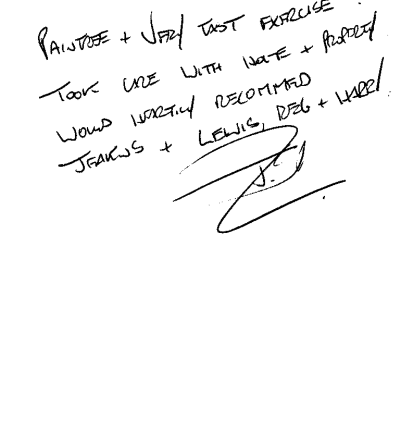 PAINFREE + VERY FAST EXERCISE.
TOOK CARE WITH + PROPERTY
WOULD HEARTILY RECOMMED
JEAKINS + LEWIS, REG + HARRY